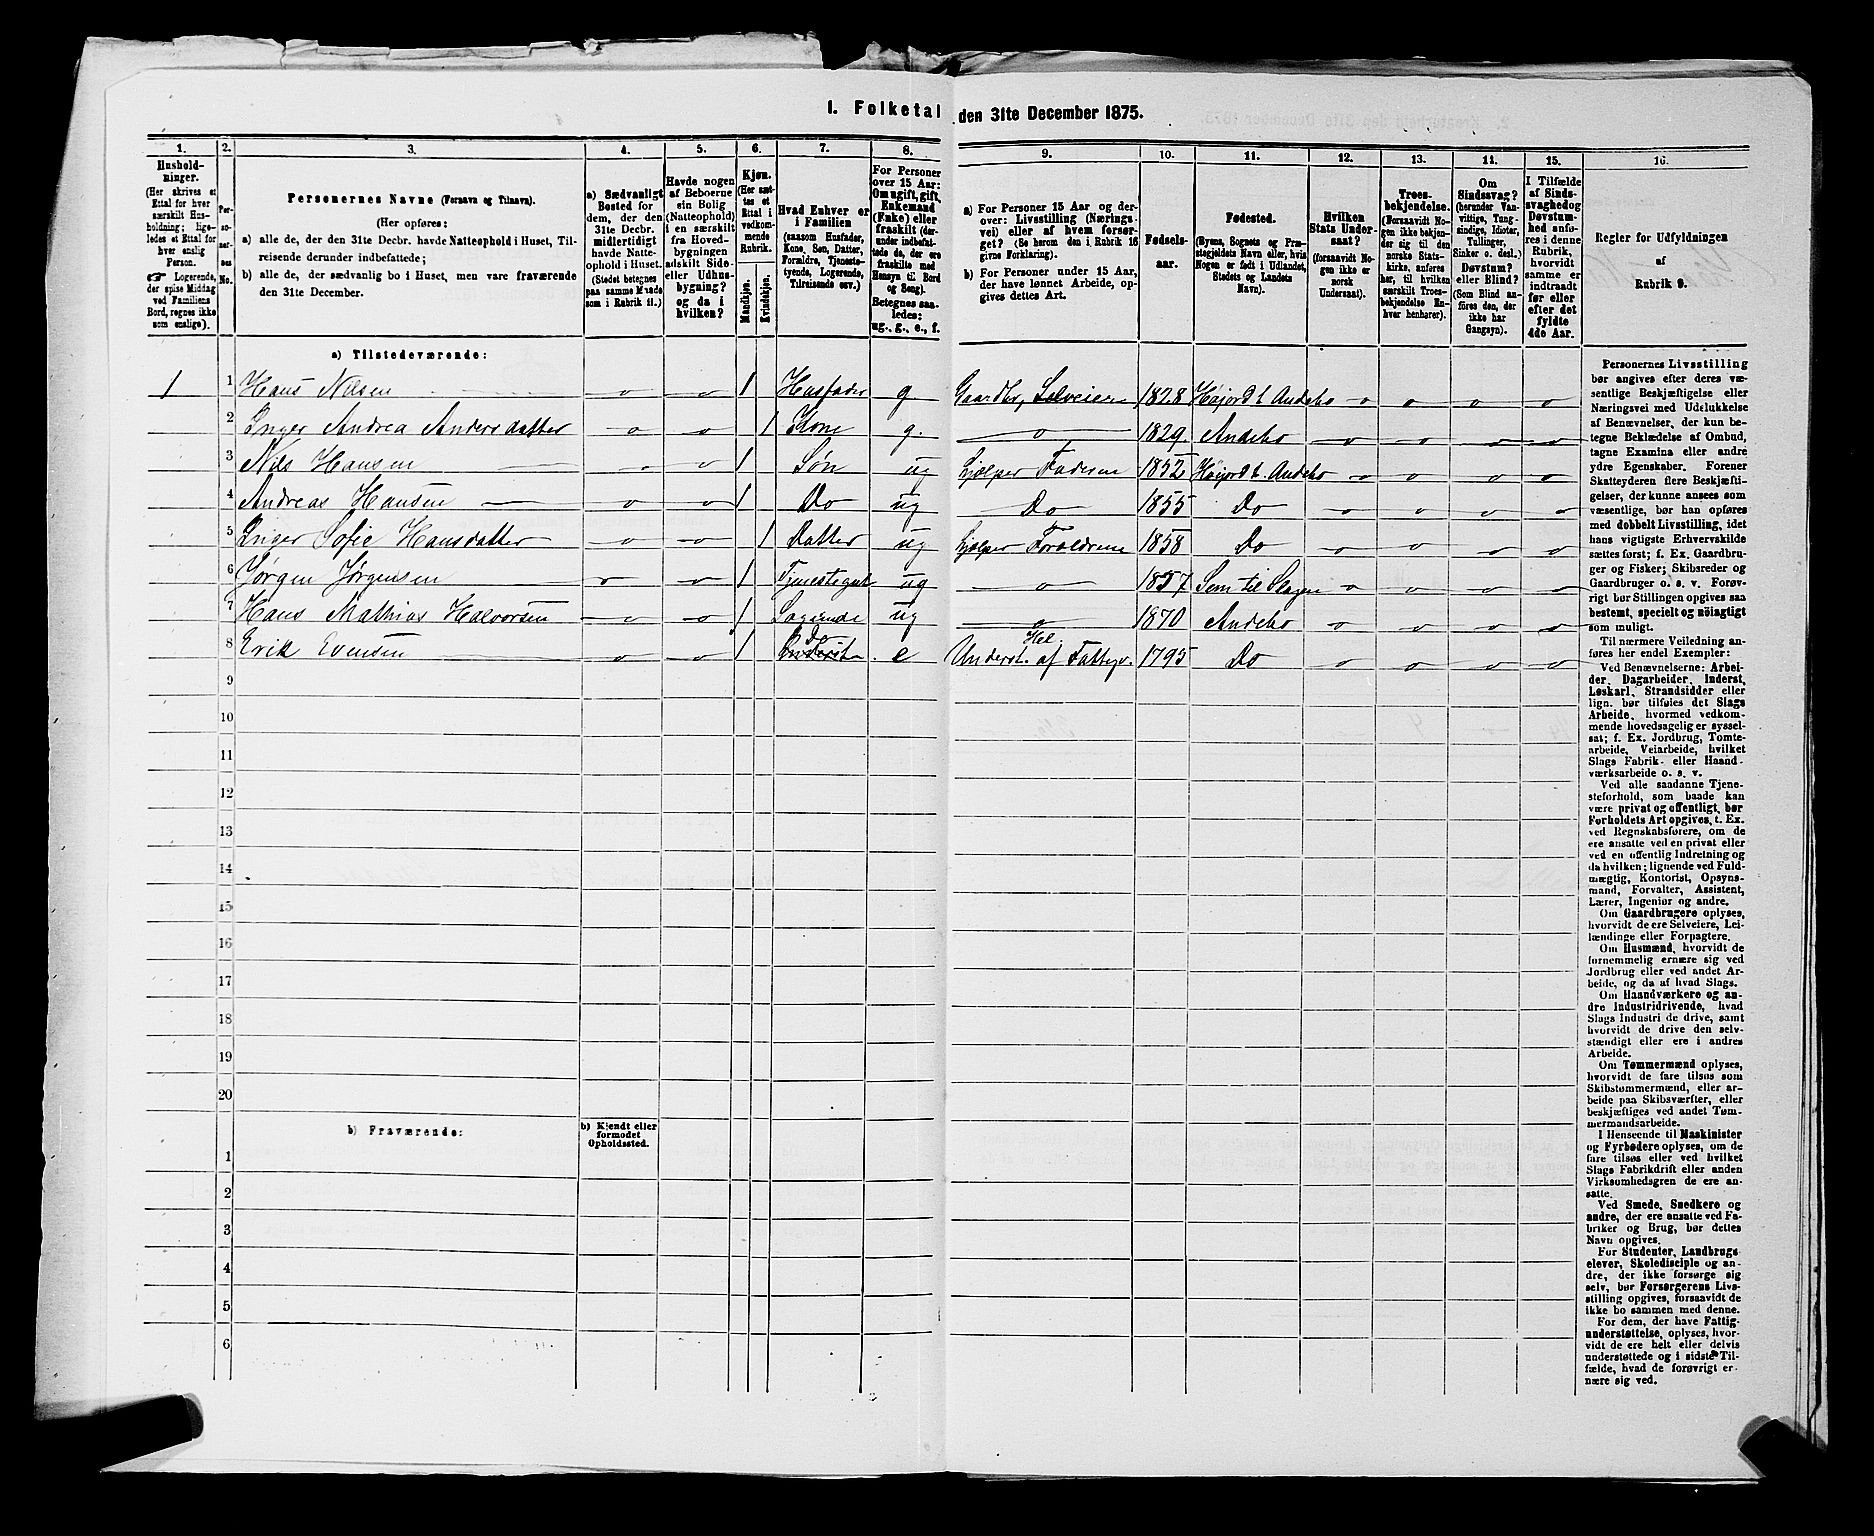 I. Folketal den 31te December 1875.
1. 2. 3. 4. 5. 6. 7. 8. 9. 10. 11. 12. 13. 14. 15. 16.
Hushold-
ninger.
(Her skrives et
Ettal for hver
særskilt Hus-
holdning; lige-
ledes et Ettal for
hver enslig
Person.
Logerende,
der spise Middag
ved Familiens
Bord, regnes ikke
som enslige).
Per-
so-
ner-
nes
No.
Personernes Navne (Fornavn og Tilnavn).
(Her opføres:
a) alle de, der den 31te Decbr. havde Natteophold i Huset, Til-
reisende derunder indbefattede;
b) alle de, der sædvanlig bo i Huset, men vare fraværende
den 31te December.
a) Sædvanligt
Bosted for
dem, der den
31te Decbr.
midlertidigt
havde Natte-
ophold i Huset.
(Stedet betegnes
paa samme Maade
som i Rubrik 11.)
Havde nogen
af Beboerne
sin Bolig
(Natteophold)
i en særskilt
fra Hoved-
bygningen
adskilt Side-
eller Udhus-
bygning?
og da i
hvilken?
Kjøn.
(Her sæt-
tes et
Ettal i
vedkom-
mende
Rubrik.
Mandkjøn.
Kvindekjøn.
Hvad Enhver er
i Familien
(saasom Husfader,
Kone, Søn, Datter,
Forældre, Tjeneste-
tyende, Logerende,
Tilreisende osv.)
For Personer
over 15 Aar:
Om ugift, gift,
Enkemand
(Enke) eller
fraskilt (der-
under indbefat-
tede de, der ere
fraskilte med
Hensyn til Bord
og Seng).
Betegnes saa-
ledes:
ug., g., e., f.
a) For Personer 15 Aar og der-
over: Livsstilling (Nærings-
vei) eller af hvem forsør-
get? (Se herom den i Rubrik 16
givne Forklaring).
b) For Personer under 15 Aar,
der have lønnet Arbeide, op-
gives dettes Art.
Fødsels-
aar.
Fødested.
(Byens, Sognets og Præ-
stegjeldets Navn eller, hvis
Nogen er født i Udlandet,
Stedets og Landets
Navn).
Hvilken
Stats Under-
saat?
(forsaavidt No-
gen ikke er
norsk
Undersaat).
Troes-
bekjendelse.
(Forsaavidt No-
gen ikke bekjen-
der sig til den
norske Stats-
kirke, anføres
her, til hvilken
særskilt Troes-
bekjendelse En-
hver henhører).
Om
Sindssvag?
(herunder Van-
vittige, Tung-
sindige, Idioter,
Tullinger,
Sinker o. desl.)
Døvstum?
eller Blind?
(Som Blind an-
føres den, der
ikke har
Gangsyn).
I Tilfælde
af Sinds-
svaghed og
Døvstum-
hed anfø-
res i denne
Rubrik,
hvorvidt
samme er
indtraadt
før eller
efter det
fyldte
4de Aar.
Regler for Udfyldningen
af
Rubrik 9.
a) Tilstedeværende:
1 1 Hans Nilsen o o 1 Husfader g. Gaardbr, Selveier 1828 Høijord t. Andebo o o o o
2 Inger Andrea Andersdatter o o 1 Kone g. o 1829. Andebo o o o o
3 Nils Hansen o o 1 Søn ug hjælper Faderen 1852 Høijord t. Andebo o o o o
4 Andreas Hansen o o 1 Do ug Do 1855 Do o o o o
5 Inger Sofie Hansdatter o o 1 Datter ug hjælper Forældrene 1858 Do o o o o
6 Jørgen Jørgensen o o 1 Tjenestegut ug o 1857 Sem til Slagen o o o o
7 Hans Mathias Halvorsen o o 1 ug o 1870 Andebo o o o o
8 Erik Evensen o o 1 Do e Underst. Hel. af Fattigv. 1795 Do o o o o
9
10
11
12
13
14
15
16
17
18
19
20
b) Fraværende:
b) Kjendt eller
formodet
Opholdssted.
1
2
3
4
5
6
Personernes Livsstilling
bør angives efter deres væ-
sentlige Beskjæftigelse eller
Næringsvei med Udelukkelse
af Benævnelser, der kun be-
tegne Beklædelse af Ombud,
tagne Examina eller andre
ydre Egenskaber. Forener
Skatteyderen flere Beskjæfti-
gelser, der kunne ansees som
væsentlige, bør han opføres
med dobbelt Livsstilling, idet
hans vigtigste Erhvervskilde
sættes først; f. Ex. Gaardbru-
ger og Fisker; Skibsreder og
Gaardbruger o. s. v. Forøv-
rigt bør Stillingen opgives saa
bestemt, specielt og nöiagtigt
som muligt.
Til nærmere Veiledning an-
føres her endel Exempler:
Ved Benævnelserne: Arbei-
der, Dagarbeider, Inderst,
Løskarl, Strandsidder eller
lign. bør tilføies det Slags
Arbeide, hvormed vedkom-
mende hovedsagelig er syssel-
sat; f. Ex. Jordbrug, Tomte-
arbeide, Veiarbeide, hvilket
Slags Fabrik- eller Haand-
værksarbeide o. s. v.
Ved alle saadanne Tjene-
steforhold, som baade kan
være privat og offentligt, bør
Forholdets Art opgives, t. Ex.
ved Regnskabsførere, om de
ere ansatte ved en privat eller
ved en offentlig Indretning og
da hvilken; lignende ved Fuld-
mægtig, Kontorist, Opsyns-
mand, Forvalter, Assistent,
Lærer, Ingeniør og andre.
Om Gaardbrugere oplyses,
hvorvidt de ere Selveiere, Lei-
lændinge eller Forpagtere.
Om Husmænd, hvorvidt de
fornemmelig ernære sig ved
Jordbrug eller ved andet Ar-
beide, og da af hvad Slags.
Om Haandværkere og an-
dre Industridrivende, hvad
Slags Industri de drive, samt
hvorvidt de drive den selv-
stændigt eller ere i andres
Arbeide.
Om Tømmermænd oplyses,
hvorvidt de fare tilsøs som
Skibstømmermænd, eller ar-
beide paa Skibsværfter, eller
beskjæftiges ved andet Tøm-
mermandsarbeide.
I Henseende til Maskinister
og Fyrbødere oplyses, om de
fare tilsøs eller ved hvilket
Slags Fabrikdrift eller anden
Virksomhedsgren de ere an-
satte.
Ved Smede, Snedkere og
andre, der ere ansatte ved Fa-
briker og Brug, bør dettes
Navn opgives.
For Studenter, Landbrugs-
elever, Skoledisciple og an-
dre, der ikke forsørge sig
selv, bør Forsørgerens Livs-
stilling opgives, forsaavidt de
ikke bo sammen med denne.
For dem, der have Fattig-
understøttelse, oplyses, hvor-
vidt de ere helt eller delvis
understøttede og i sidste Til-
fælde, hvad de forøvrigt er-
nære sig ved.